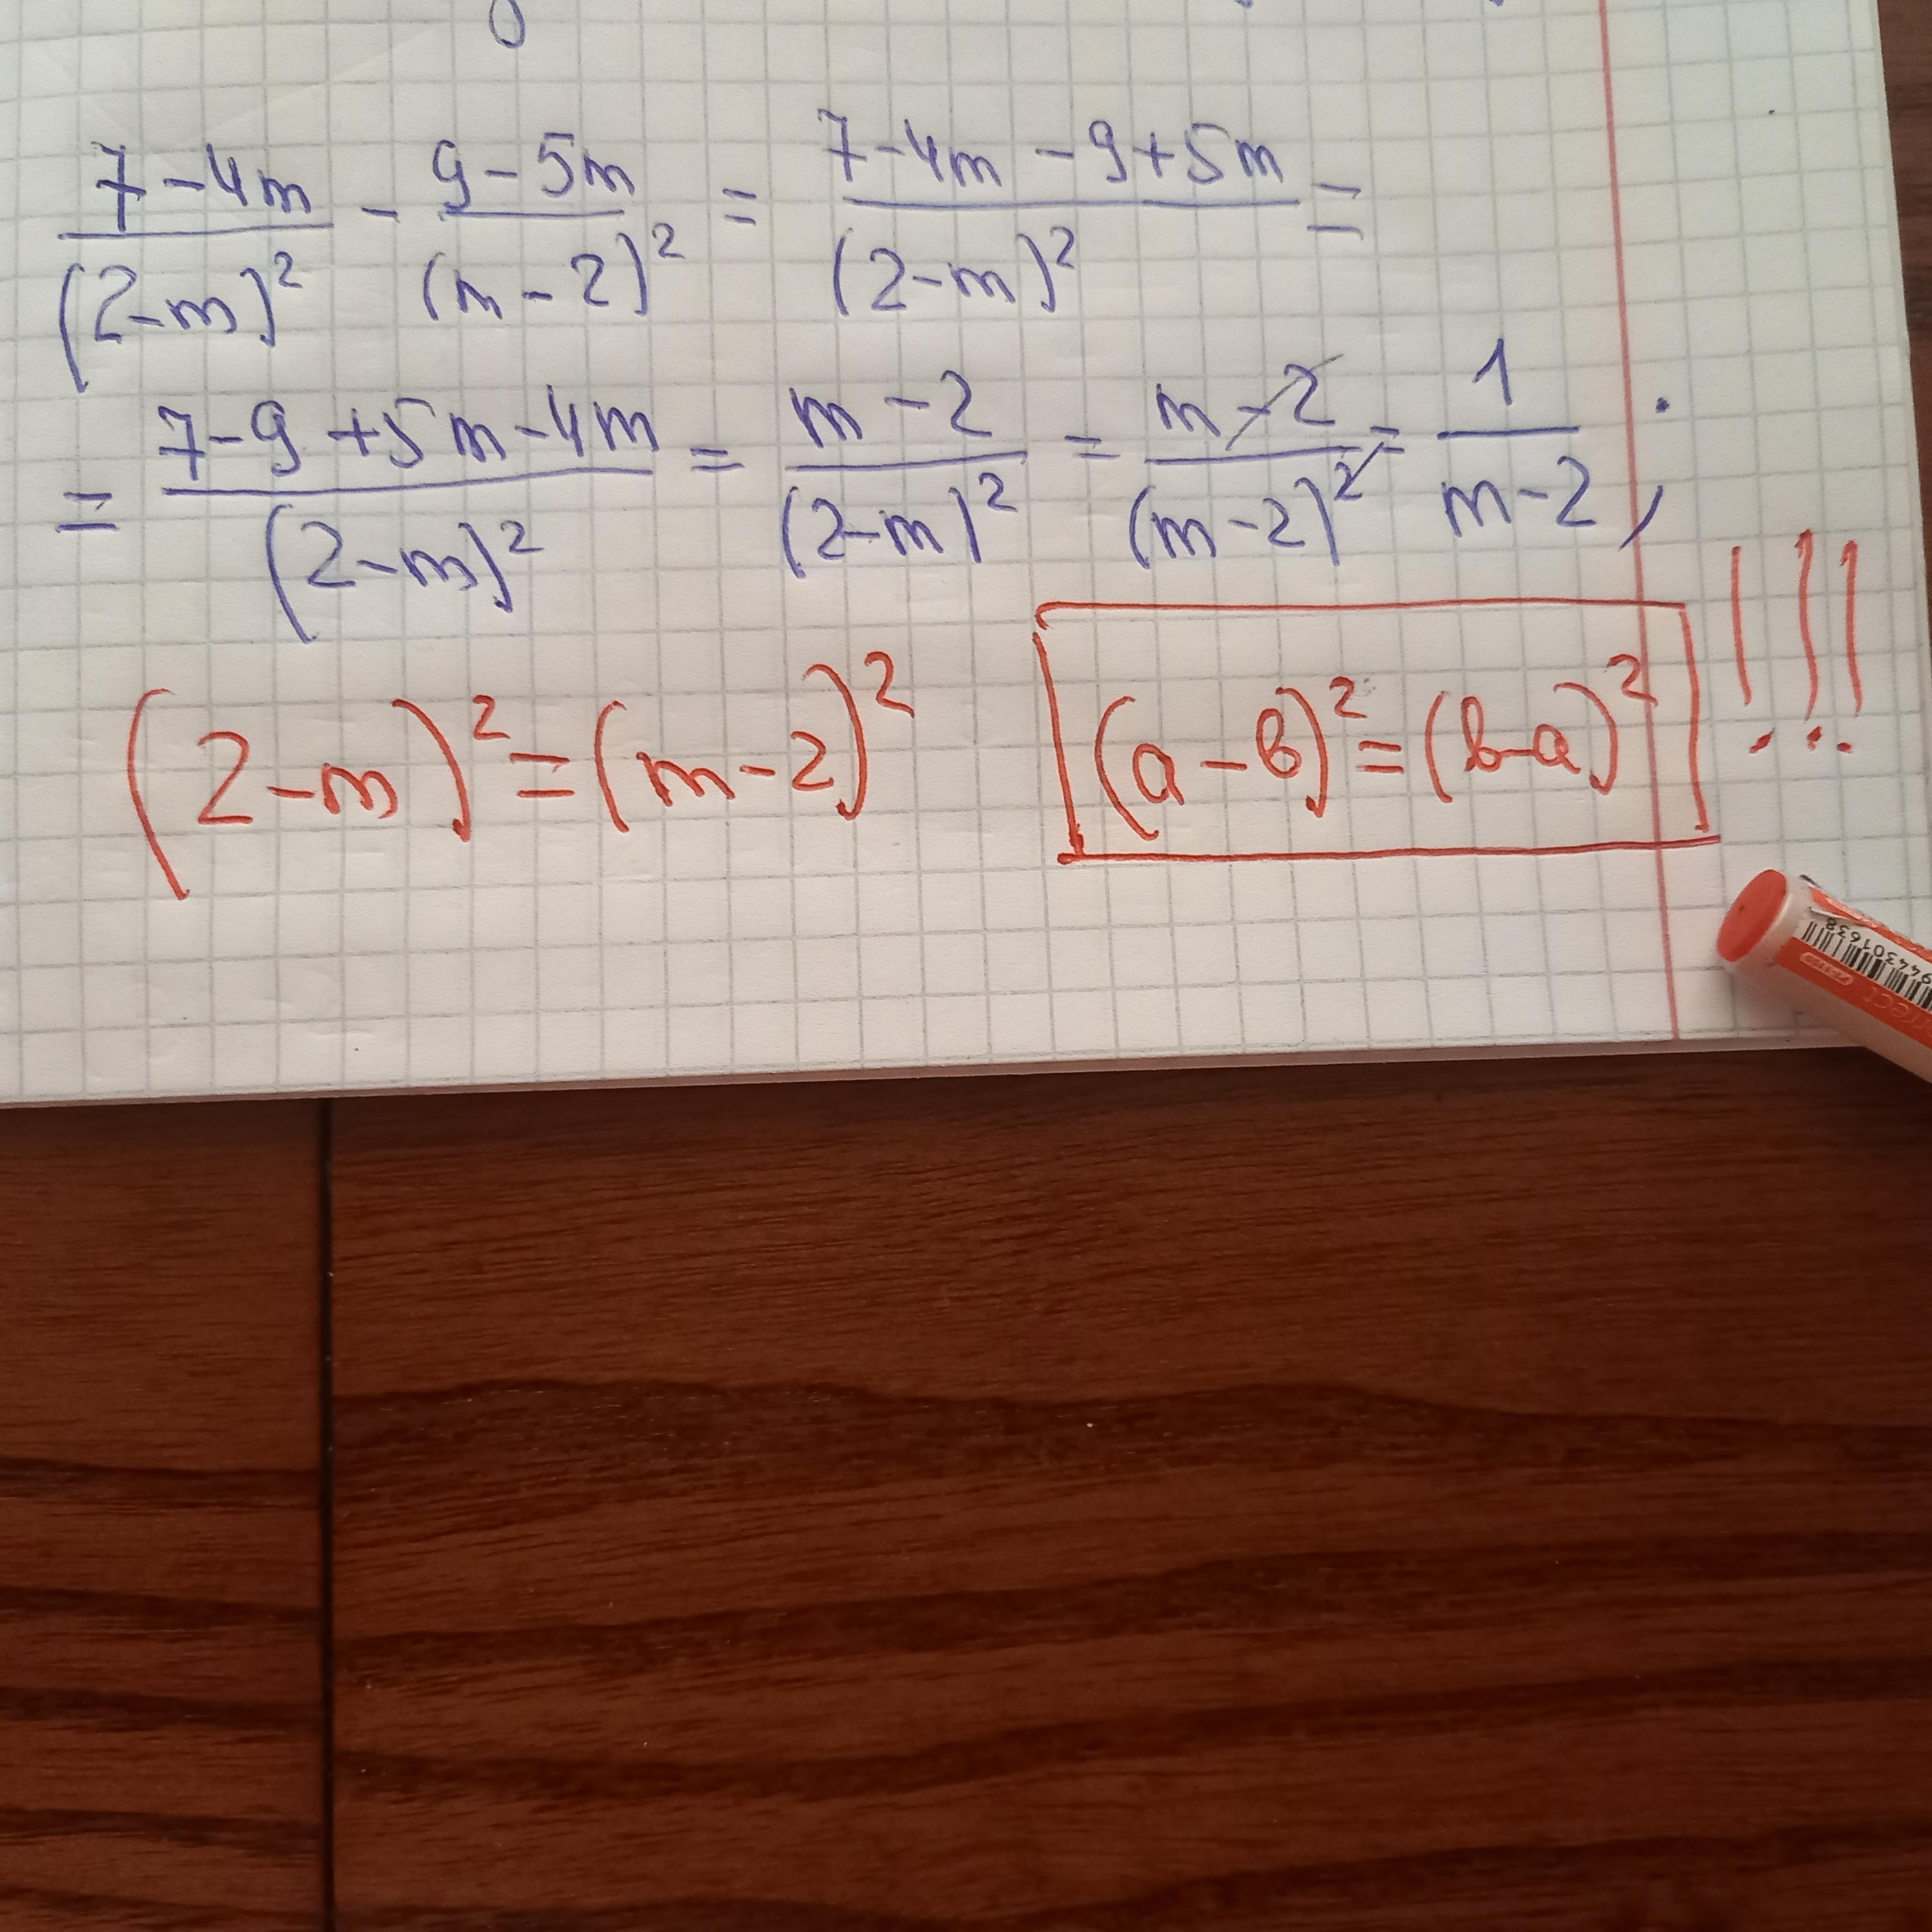 (7-4m)/(2-m)² - (9-5m)/(m-2)² = (7-4m-9+5m)/(2-m)² =
= (7-9+5m-4m)/(2-m)² = (m-2)/(2-m)² = (m-2)/(m-2)² = 1/(m-2);
(2-m)² = (m-2)² (a-b)² = (b-a)² !!!